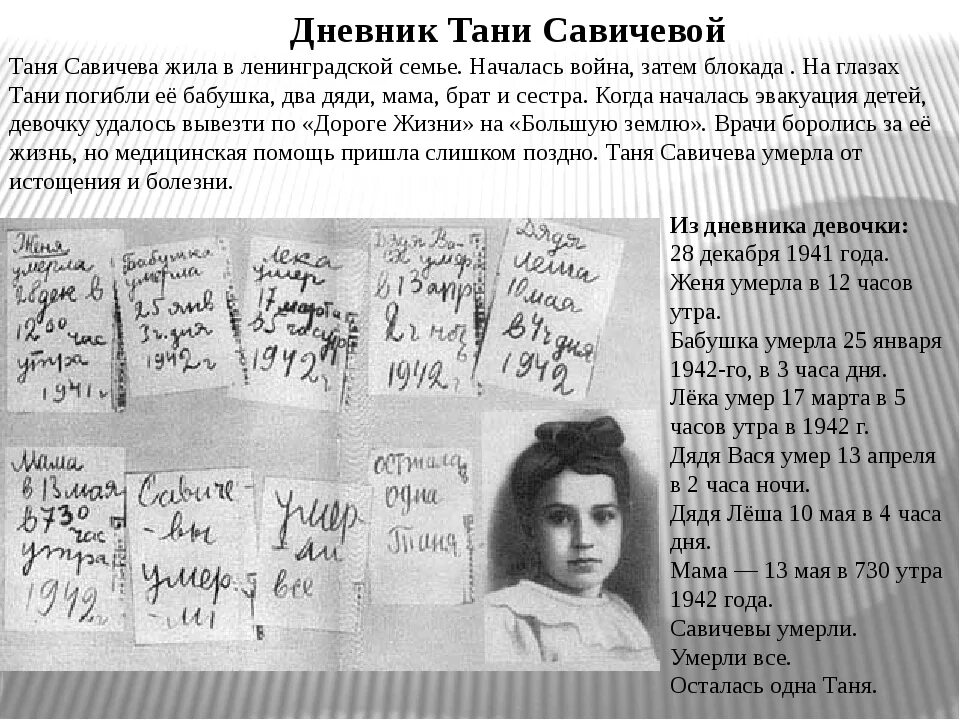 Дневник Тани Савичевой
Таня Савичева жила в ленинградской семье. Началась война, затем блокада . На глазах
Тани погибли её бабушка, два дяди, мама, брат и сестра. Когда началась эвакуация детей,
девочку удалось вывезти по «Дороге Жизни» на «Большую землю». Врачи боролись за её
жизнь, но медицинская помощь пришла слишком поздно. Таня Савичева умерла от
истощения и болезни.
Женя
умерла
28 дек в
12 00 час
утра
1941 г
Бабушка
умерла
25 янв
3 ч. дня
1942 г
Лека
умер
17 марта
в 5 час утр
1942 г
Дядя Ва-
ся умер
в 13 апр
2 ч ноч
1942 г
Дядя
Леша
10 мая
в 4 ч дня
1942
Мама
в 13 мая
в 7 30
час
утра
1942 г
Савиче-
-вы
умер-
-ли
Умер
-ли
все
осталась
одна
Таня
Из дневника девочки:
28 декабря 1941 года.
Женя умерла в 12 часов
утра.
Бабушка умерла 25 января
1942-го, в 3 часа дня.
Лёка умер 17 марта в 5
часов утра в 1942 г.
Дядя Вася умер 13 апреля
в 2 часа ночи.
Дядя Лёша 10 мая в 4 часа
дня.
Мама — 13 мая в 730 утра
1942 года.
Савичевы умерли.
Умерли все.
Осталась одна Таня.